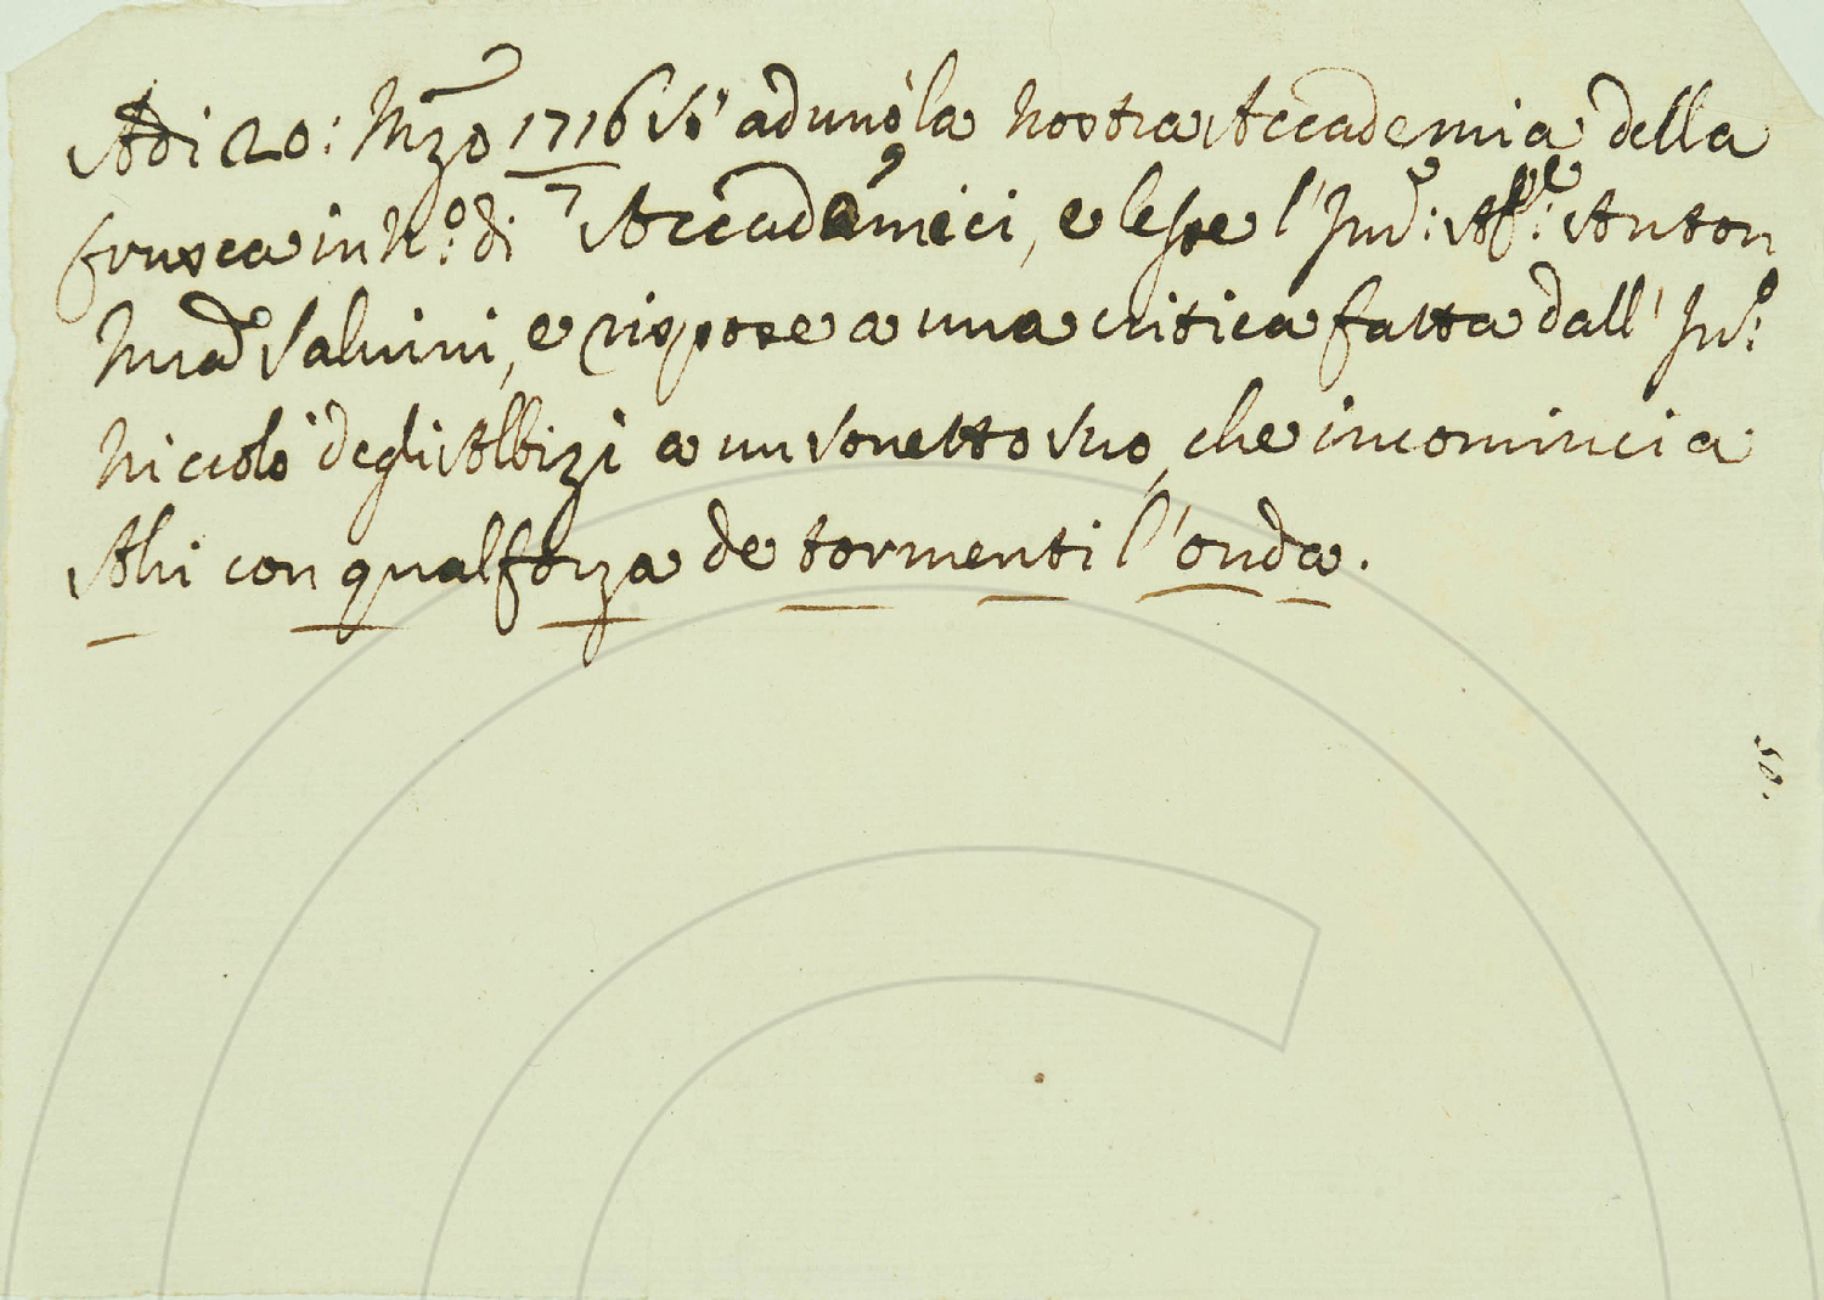 Adi 20: Mzo 1716 si adunò la nostra Accademia della
frusca in N.º di 7 Accademici, e lesse l' Ind: Ab:e Anton
Mra Salvini, e rispose a una critica fatta dall' In:º
Niccolò degli Albizi a un sonetto suo, che incomincia
Ahi con qual forza de tormenti l'onda.
50.